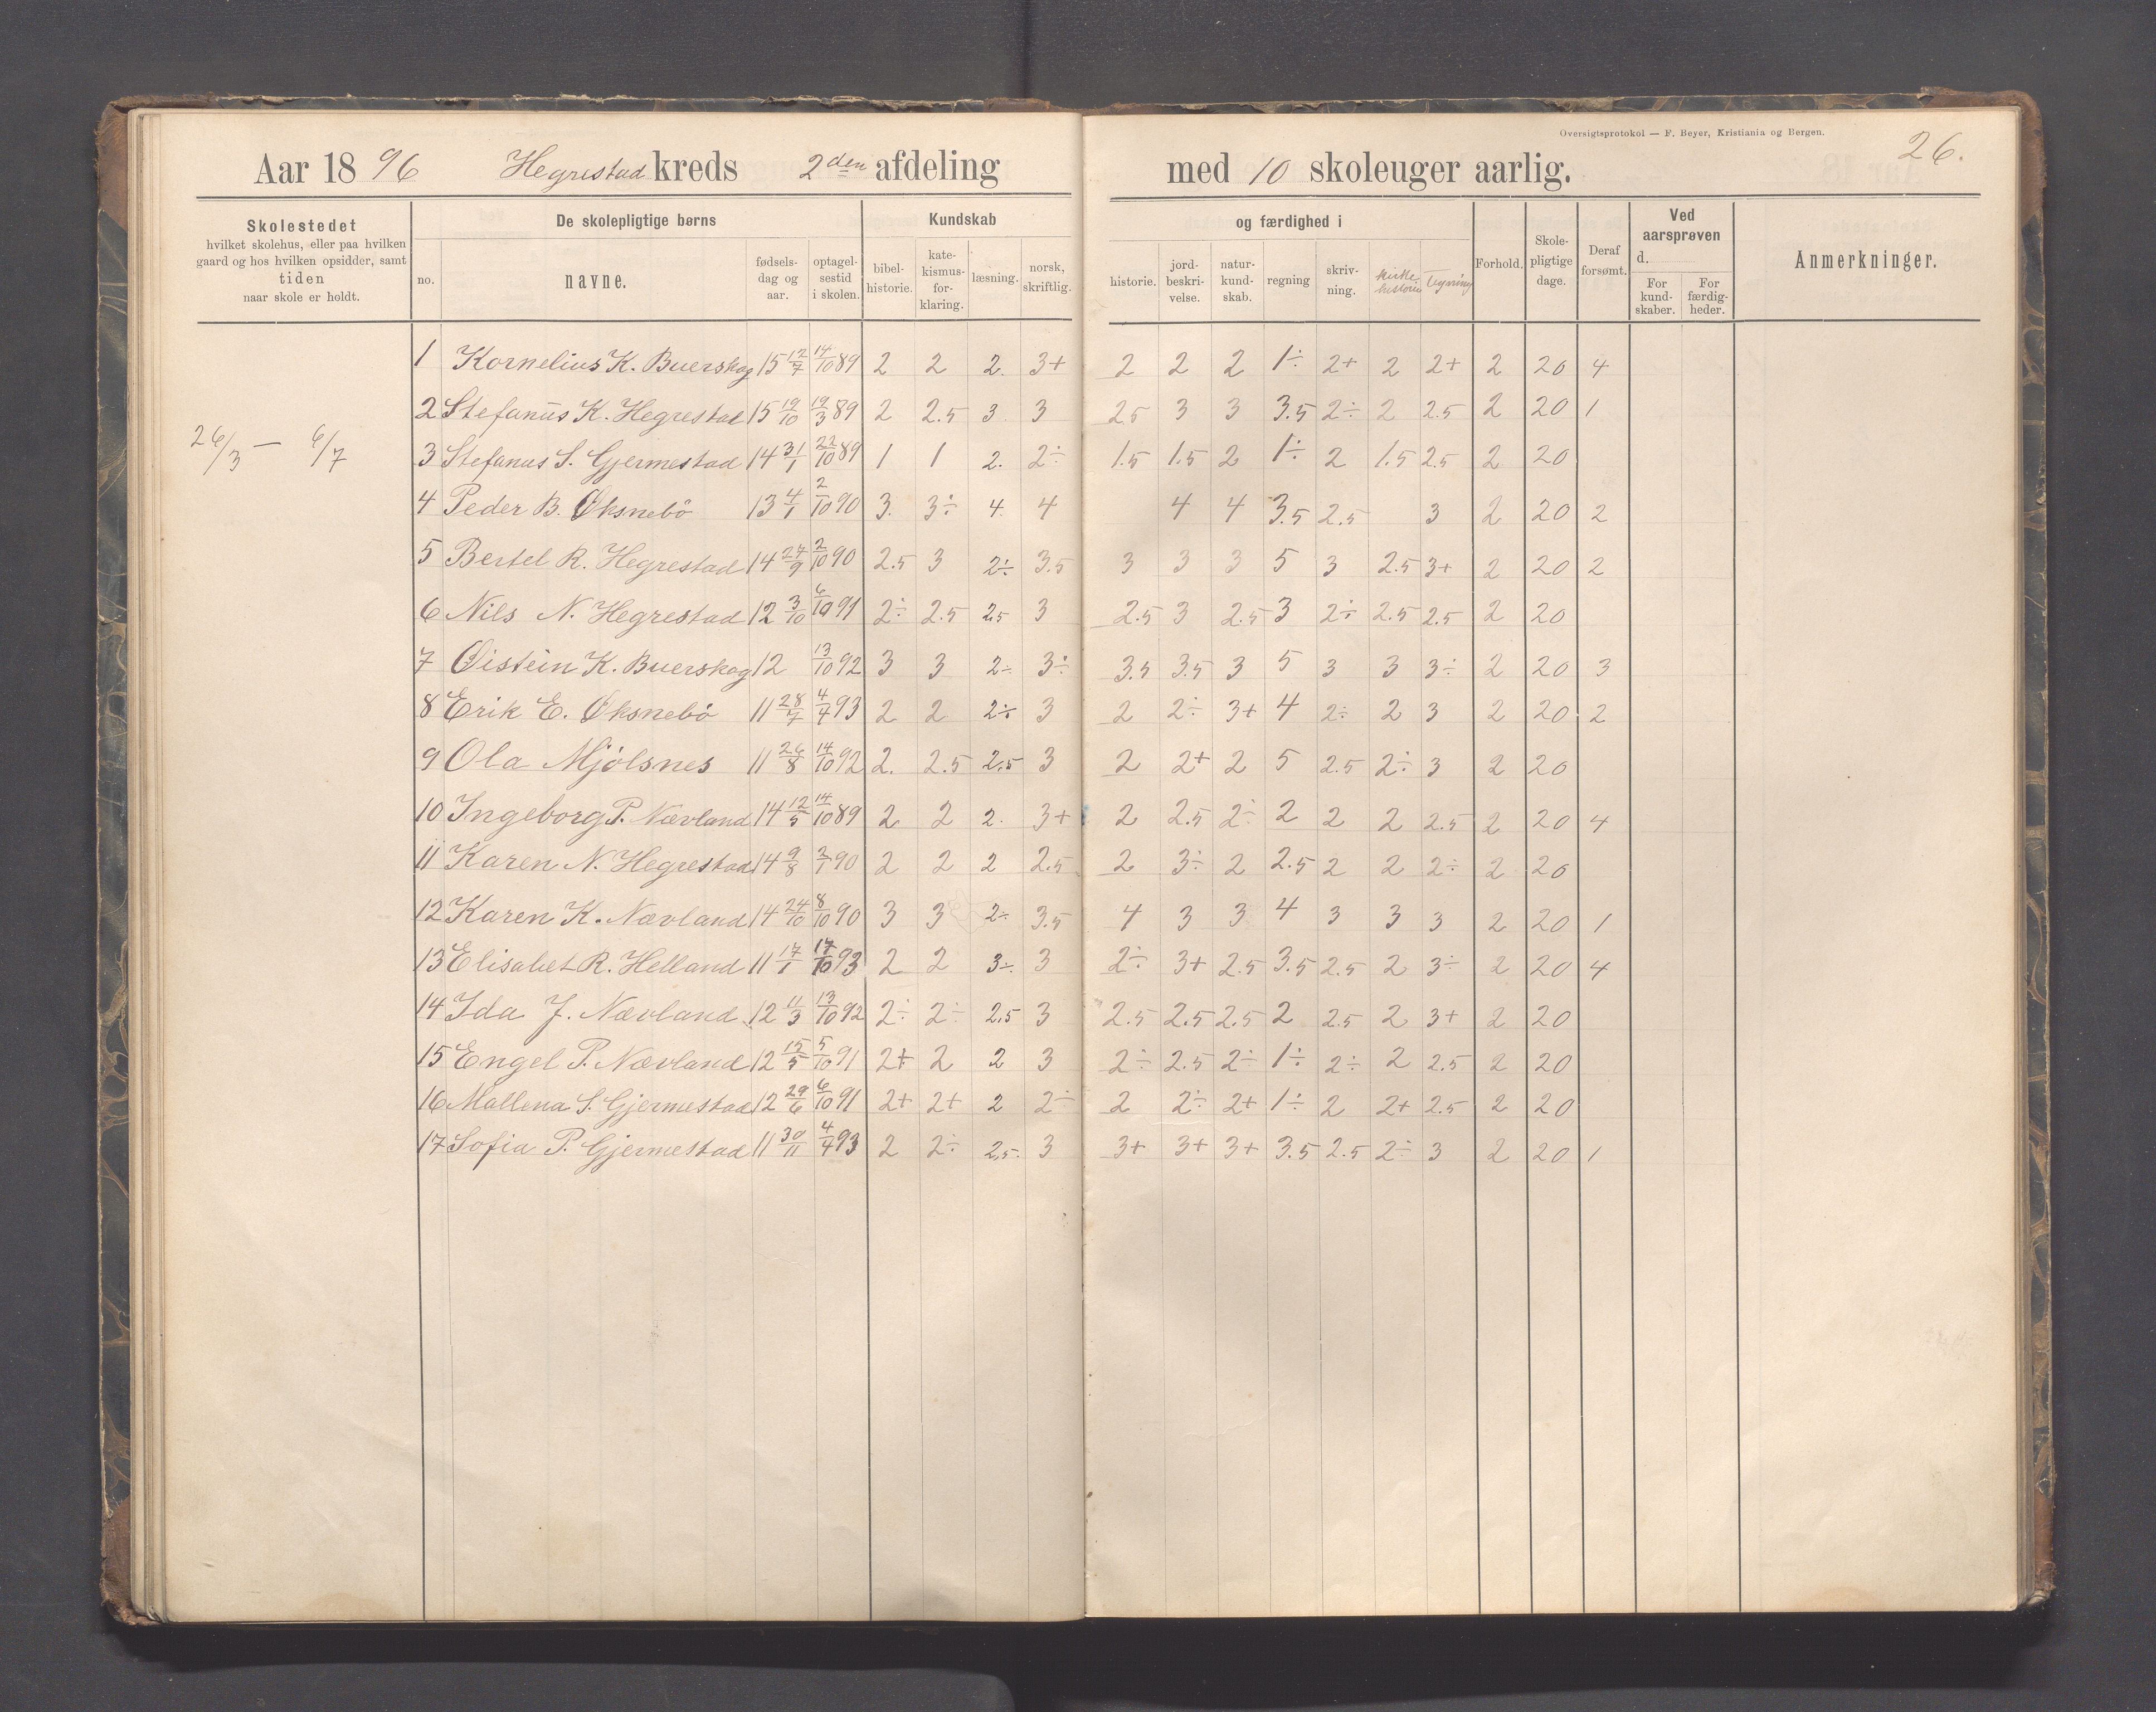 Oversigtsprotokol — F. Beyer, Kristiania og Bergen.
26.
Aar 1896 Hegrestad kreds 2den afdeling med 10 skoleuger aarlig.
Skolestedet hvilket skolehus, eller paa hvilken gaard og hos hvilken opsidder, samt tiden naar skole er holdt.
De skolepligtige børns
no. navne. fødsels-dag og aar. optagel-sestid i skolen.
Kundskab og færdighed i
bibel-historie. kate-kismus-for-klaring. læsning. norsk, skriftlig. historie. jord-beskri-velse. natur-kund-skab. regning skriv-ning. kirkehistorie Tegning
Forhold. Skole-pligtige dage. Deraf forsømt.
Ved aarsprøven d.
For kund-skaber. For færdig-heder.
Anmerkninger.
26/3 — 6/7
1 Kornelius K. Buerskog 15 12/7 14/10 89 2 2 2. 3+ 2 2 2 1÷ 2+ 2 2+ 2 20 4
2 Stefanus K. Hegrestad 15 19/10 19/3 89 2 2.5 3. 3 25 3 3 3.5 2÷ 2 2.5 2 20 1
3 Stefanus S. Gjermestad 14 31/1 22/10 89 1 1 2. 2÷ 1.5 1.5 2 1÷ 2 1.5 2.5 2 20
4 Peder B. Øksnebö 13 4/1 2/10 90 3. 3÷ 4. 4 4 4 3.5 2.5 3 2 20 2
5 Bertel R. Hegrestad 14 24/9 2/10 90 2.5 3 2÷ 3.5 3 3 3 5 3 2.5 3+ 2 20 2
6 Nils N. Hegrestad 12 3/10 6/10 91 2÷ 2.5 2.5 3 2.5 3 2.5 3 2÷ 2.5 2.5 2 20
7 Øistein K. Buerskog 12 13/10 92 3 3 2÷ 3÷ 3.5 3.5 3 5 3 3 3÷ 2 20 3
8 Erik E. Øksnebö 11 28/7 4/4 93 2 2 2÷ 3 2 2÷ 3+ 4 2÷ 2 3 2 20 2
9 Ola Mjölsnes 11 26/8 14/10 92 2. 2.5 2.5 3 2 2+ 2 5 2.5 2÷ 3 2 20
10 Ingeborg P. Nævland 14 12/5 14/10 89 2 2 2. 3+ 2 2.5 2÷ 2 2 2 2.5 2 20 4
11 Karen N. Hegrestad 14 9/8 2/1 90 2 2 2 2.5 2 3÷ 2 2.5 2 2 2÷ 2 20
12 Karen K. Nævland 14 24/10 8/10 90 3 3 2÷ 3.5 4 3 3 4 3 3 3 2 20 1
13 Elisabet R. Helland 11 17/1 17/10 93 2 2 3÷ 3 2÷ 3+ 2.5 3.5 2.5 2 3÷ 2 20 4
14 Ida J. Nævland 12 11/3 13/10 92 2÷ 2÷ 2.5 3 2.5 2.5 2.5 2 2.5 2 3+ 2 20
15 Engel P. Nævland 12 15/5 5/10 91 2+ 2 2 3 2÷ 2.5 2÷ 1÷ 2÷ 2 2.5 2 20
16 Mallena S. Gjermestad 12 29/6 6/10 91 2+ 2+ 2 2÷ 2 2÷ 2+ 1÷ 2 2+ 2.5 2 20
17 Sofia P. Gjermestad 11 30/11 4/4 93 2 2÷ 2.5. 3 3+ 3+ 3+ 3.5 2.5 2÷ 3 2 20 1